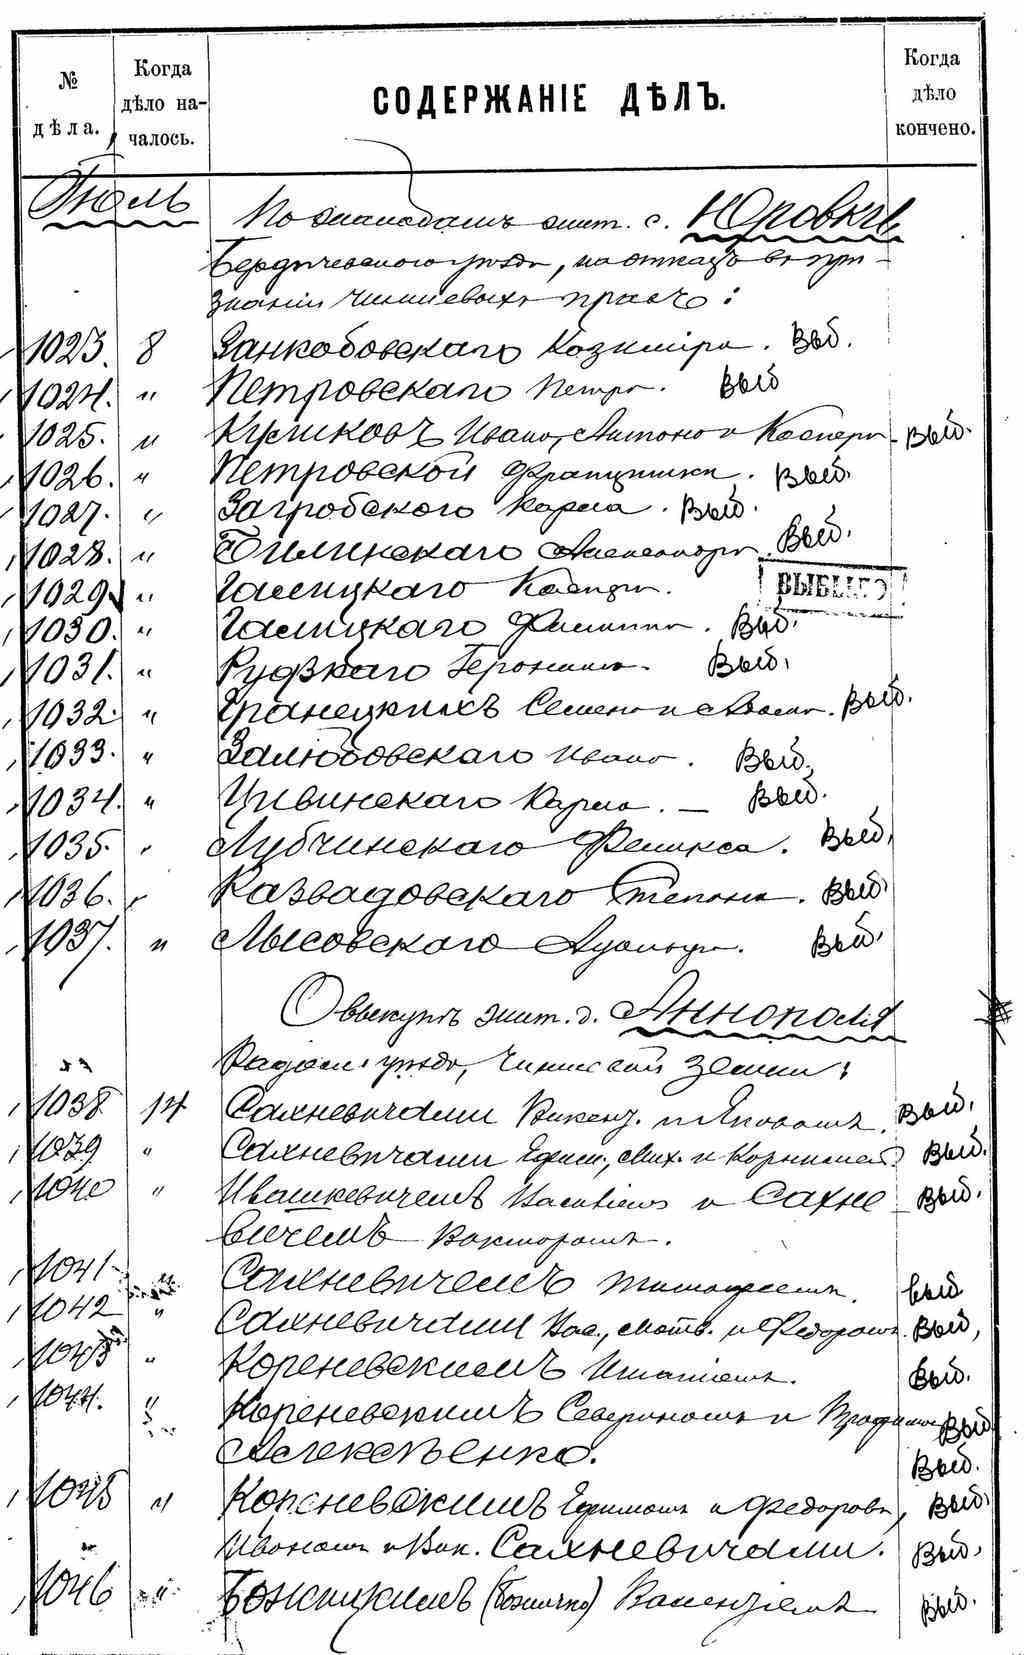 № дѣла.
Когда дѣло началось.
СОДЕРЖАНІЕ ДѢЛЪ.
Когда дѣло кончено.
Іюль
По жалобамъ жит. с. Юровки,
Бердичевскаго уѣзда, на отказъ въ при-
знаніи чиншевыхъ правъ:
1023. 8 Занкобовскаго Козиміра. Выб.
1024. " Петровскаго Петра. Выб
1025. " Куликовъ Ивана, Антона и Каспера - Выб.
1026. " Петровской Францишки. Выб.
1027. " Загробскаго Карла. Выб.
1028. " Билинскаго Александра. Выб.
1029 " Галицкаго ВЫБЫЛО
1030. " Галицкаго Филиппа. Выб.
1031. " Рудзкаго Геронима. Выб.
1032. " Гранецкихъ Семена и Адама. Выб.
1033. " Залюбовскаго Ивана. Выб.
1034. " Цивинскаго Карла. — Выб.
1035. " Лубчинскаго Феликса. Выб.
1036. " Развадовскаго Степана. Выб.
1037. " Лысовскаго Адольфа. Выб.
О выкупѣ жит. д. Аннополя
Радом. уѣзда, чиншевой земли:
1038 14 Сахневичами Викент. и Выб.
1039 " Сахневичами Ефим., Мих. и Корнилі Выб.
1040 " Ивашкевичемъ и Сахне Выб.
вичемъ Викторомъ.
1041 " Сахневичемъ Тимофеемъ. Выб
1042 " Сахневичами Вас., Матв. и Федоромъ. Выб,
1043 " Кореневскимъ Игнатіемъ. Выб.
1044. " Кореневскимъ Севериномъ и Выб
Алексѣенко. Выб.
1045 " Кореневскимъ Ефимомъ и Федоровъ, Выб.
Иваномъ и Вик. Сахневичами. Выб.
1046 " Божицкимъ (Божичко) Викентіемъ Выб.